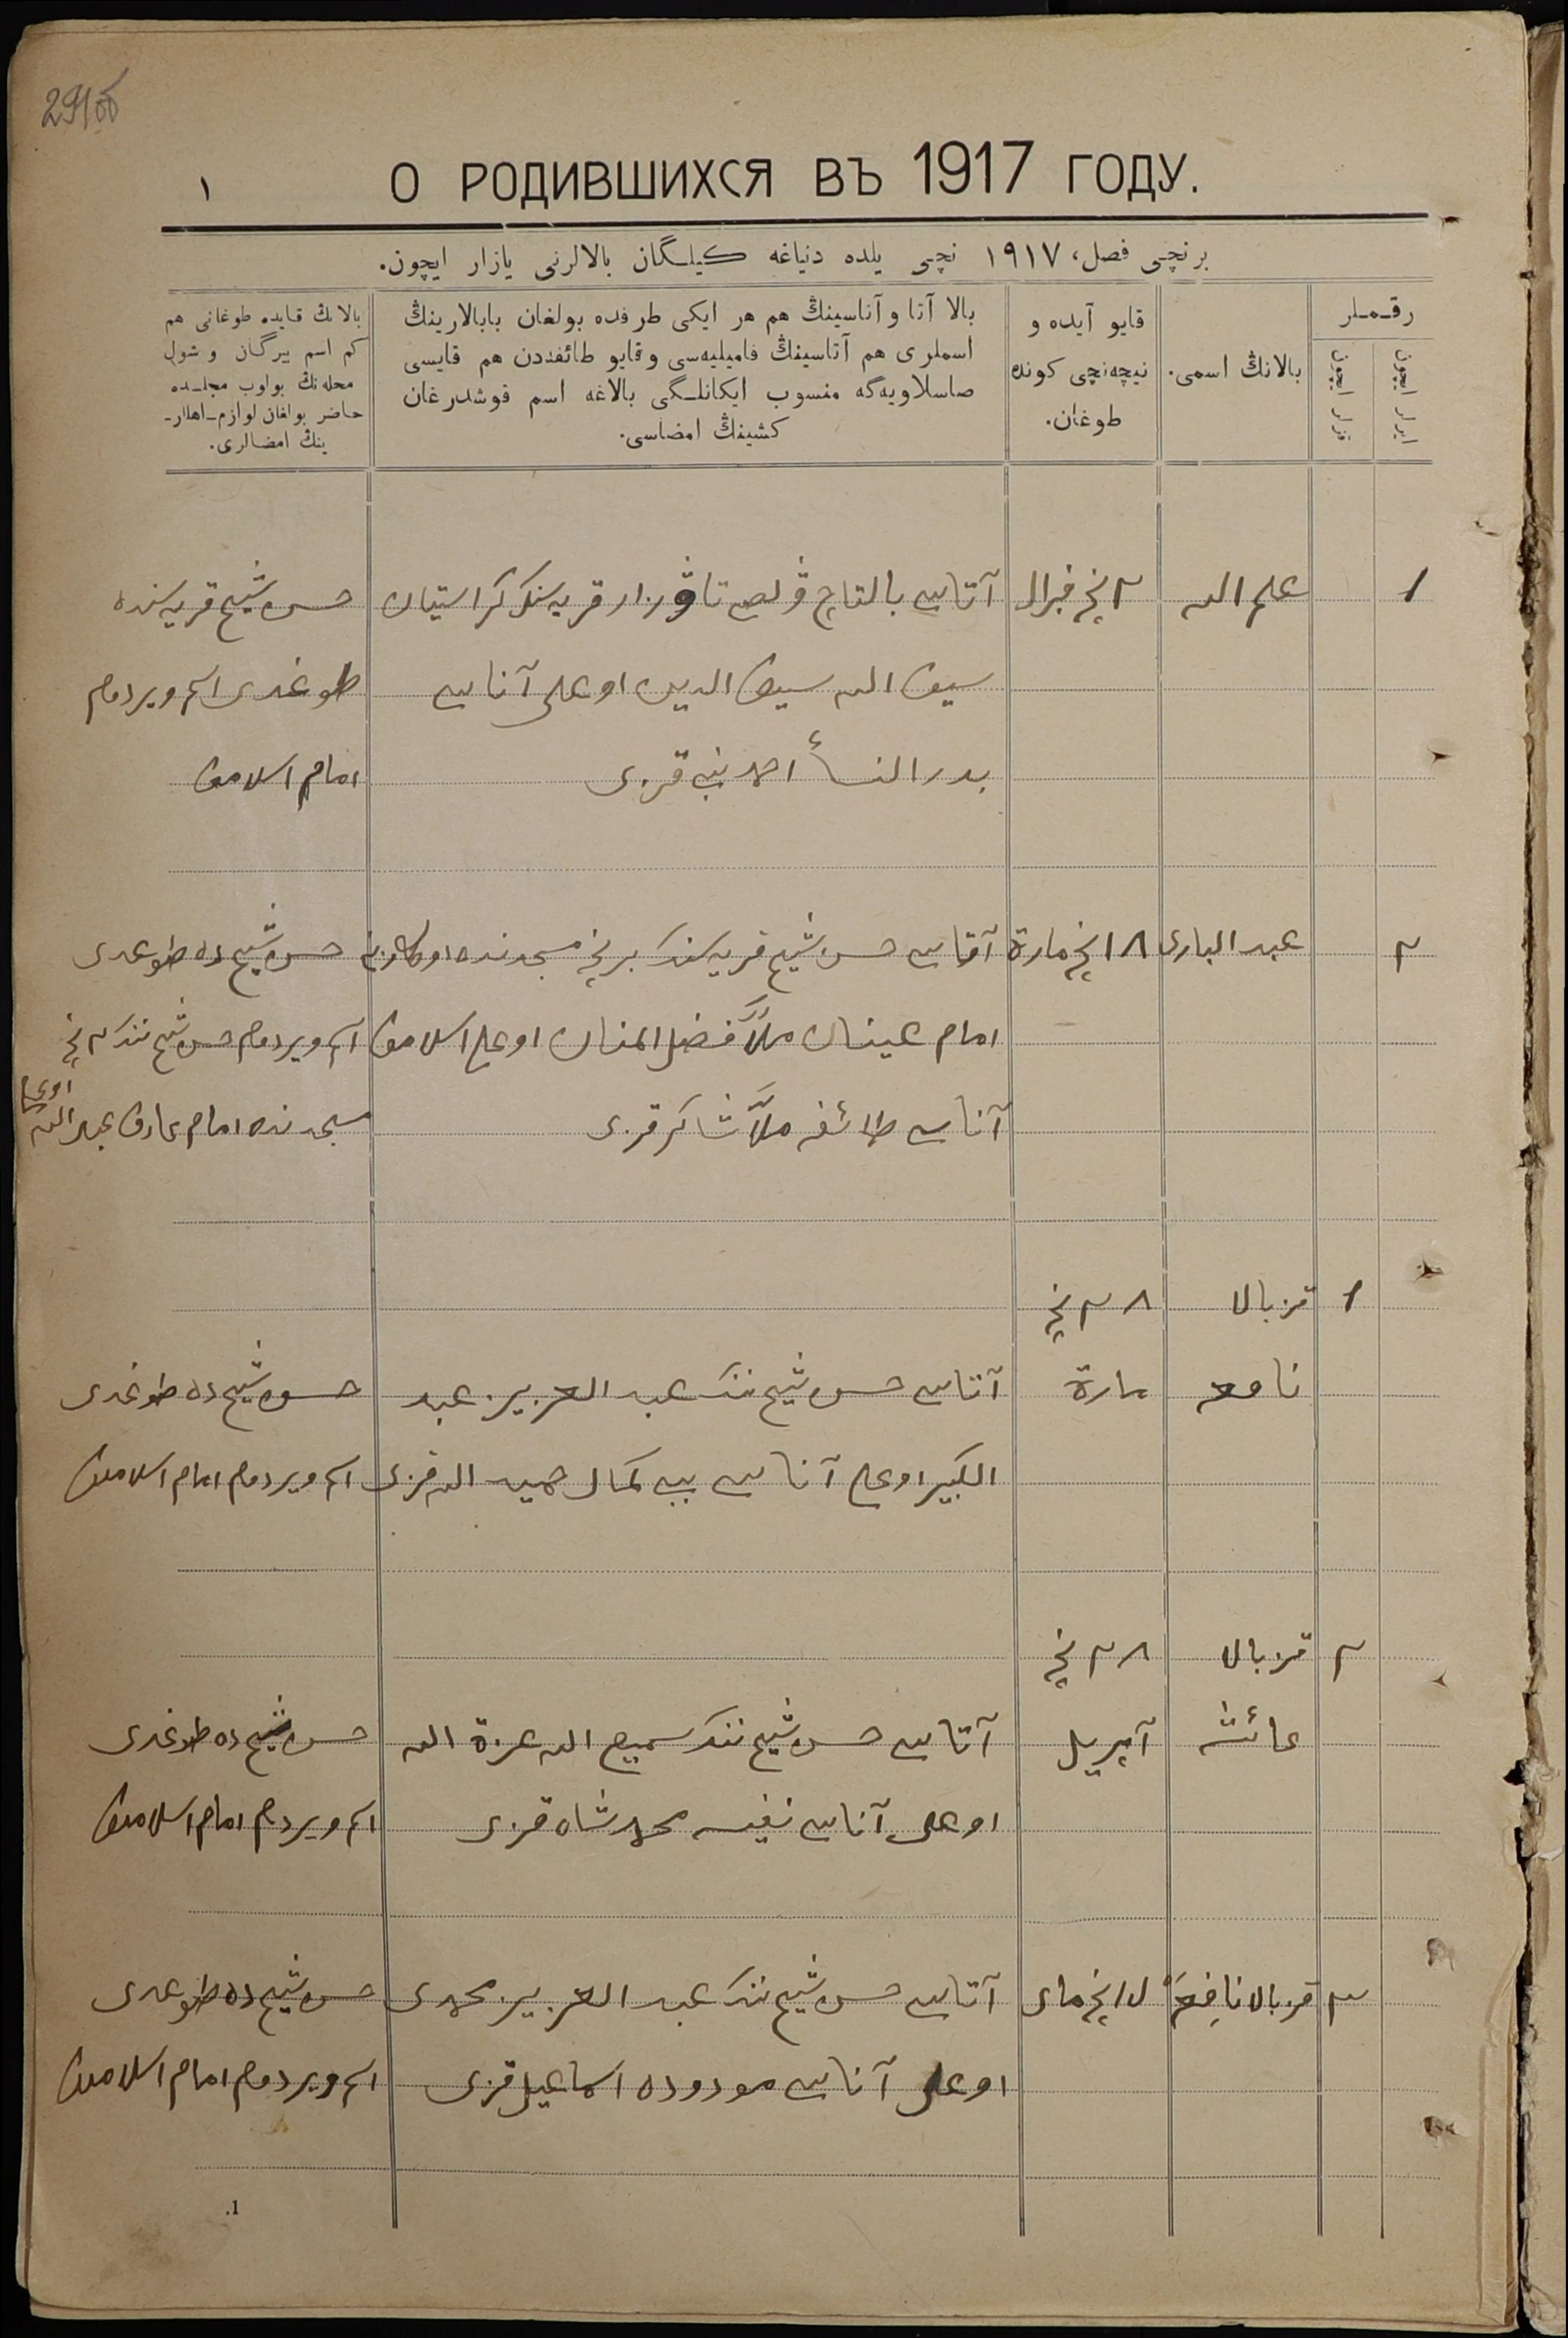 291об
О РОДИВШИХСЯ ВЪ 1917 ГОДУ.
١
برنچی فصل، ١٩١٧ نچی يلده دنياغه كيلـگان بالالرنى يازار ايچون.
رقـملر
ايرلر ايچون
قزلر ايچون
بالانڭ اسمى.
قايو آيده و
نيچه‌نچى كونده
طوغان.
بالا آتا و آناسينڭ هم هر ايكى طرفده بولغان بابالارينڭ
اسملرى هم آتاسينڭ فاميليه‌سى و قايو طائفه‌دن هم قايسى
صاسلاويه‌گه منسوب ايكانلـگى بالاغه اسم قوشدرغان
كشينڭ امضاسى.
بالانڭ قايده طوغانى هم
كم اسم بيرگان و شول
محله‌نڭ بولوب مجلـده
حاضر بولغان لوازم-اهلر-
ينڭ امضالرى.
١
علم الله
٢ نچى فبرال
آتاسى بالتاچ ڤلص تاڤزار قريه سنك كراستيان
سيف الله سيف الدين اوغلى آناسى
بدر النسأ احمد نبى قزى
حسن شيخ قريه سنده
طوغدى اسم ويردم
امام اسلاموف
٢
عبد البارى
١٨ نچى مارة
آتاسى حسن شيخ قريه سنك برنچى مسجدنده
امام عينان ملا فضل المنان اوغلى اسلاموف
آناسى طائفه ملا شاكر قزى
حسن شيخ ده طوغدى
اسم ويردم حسن شيخ ننك ٢ نچى
مسجدنده امام عارف عبد الله
اوغلى
١
قز بالا
نافعه
٢٨ نچى
مارة
آتاسى حسن شيخ ننك عبد العزيز عبد
الكبير اوغلى آناسى بيبى كمال حميد الله قزى
حسن شيخ ده طوغدى
اسم ويردم امام اسلاموف
٢
قز بالا
عائشه
٢٨ نچى
آپريل
آتاسى حسن شيخ ننك سميع الله عزة الله
اوغلى آناسى نفيسه محمد شاه قزى
حسن شيخ ده طوغدى
اسم ويردم امام اسلاموف
٣
قز بالا نافِعَه
نچى ماى
آتاسى حسن شيخ ننك عبد العزيز محمدى
اوغلى آناسى مودوده اسماعيل قزى
حسن شيخ ده طوغدى
اسم ويردم امام اسلاموف
1.